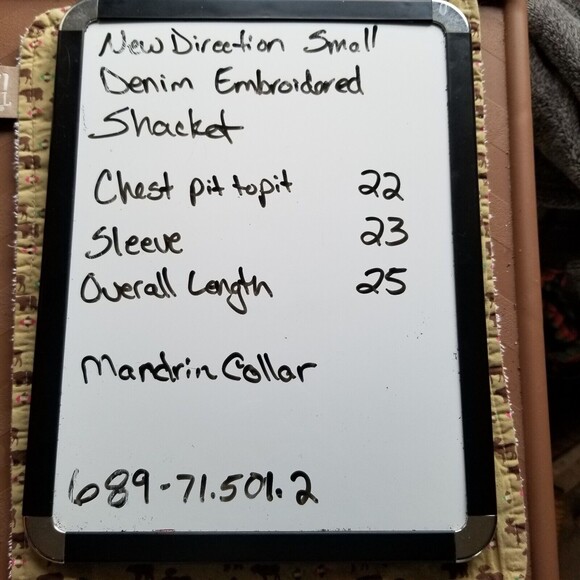 New Direction Small
Denim Embroidored
Shacket
Chest pit to pit 22
Sleeve 23
Overall Length 25
Mandrin Collar
689-71.501.2